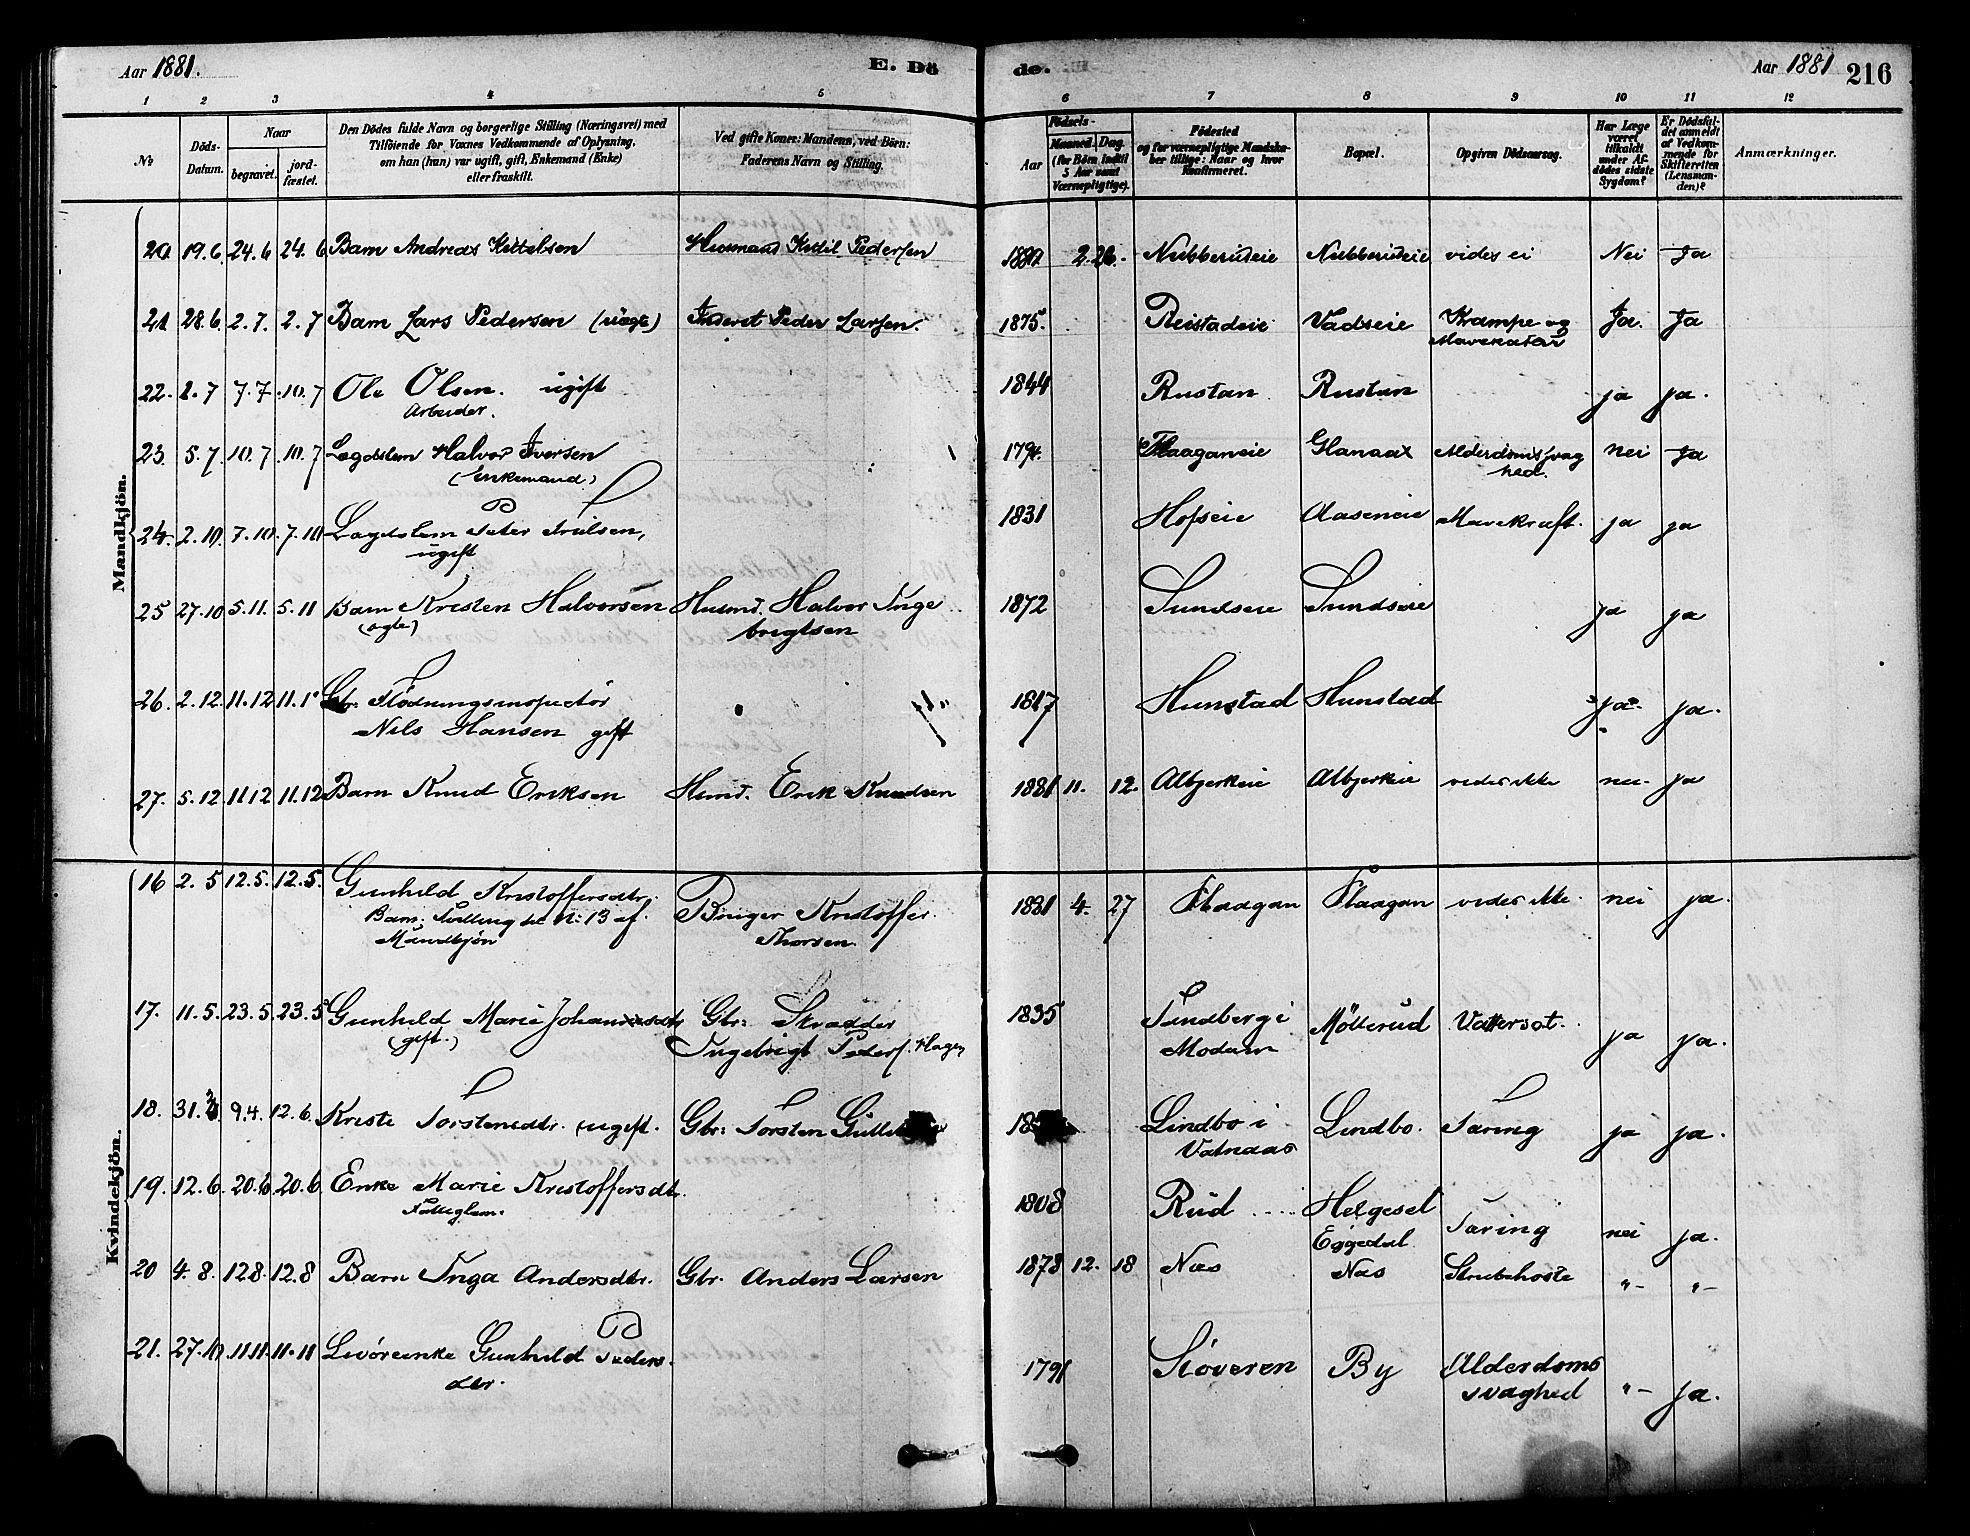 Aar 1881. E. Dö
de. Aar 1881 216
1 2 3 4 5 6 7 8 9 10 11 12
No
Döds-Datum.
Naar
begravet. jordfæstet.
Den Dödes fulde Navn og borgerlige Stilling (Næringsvei) med
Tilföiende for Voxnes Vedkommende af Oplysning,
om han (hun) var ugift, gift, Enkemand (Enke)
eller fraskilt.
Ved gifte Koner: Mandens, ved Börn:
Faderens Navn og Stilling.
Födsels-
Aar
Maaned. Dag.
(for Börn indtil
5 Aar samt
Værnepligtige).
Födested
og for værnepligtige Mandskaber tillige: Naar og hvor
konfirmeret.
Bopæl.
Opgiven Dödsaarsag.
Har Læge
været
tilkaldt
under Afdödes sidste
Sygdom?
Er Dödsfaldet anmeldt
af Vedkommende for
Skifteretten
(Lensmanden)?
Anmærkninger.
Mandkjön.
20 19.6. 24.6 24.6 Barn Andreas Kittelsen Husmand Kittil Pedersen 2. 26. Nubberudeie Nubberudeie vides ei Nei Ja
21 28.6. 2.7. 2.7 Barn Lars Pedersen (uægte) Inderst Peder Larsen. 1875. Reistadeie Vadseie Krampe og Ja. Ja
Mavekatar
22. 1.7 7.7. 10.7 Ole Olsen. ugift 1844 Rustan Rustan ja ja.
Arbeider.
23. 5.7 10.7 10.7 Lægdslem Halvor Iversen 1794. Flaaganeie Glanaax Alderdomssvag nei Ja
(Enkemand) hed.
24. 2.10. 7.10. 7.10 Lægdslem Peter Trulsen, 1831 Hofseie Aaseneie Mavekræft. ja ja
ugift
25 27.10 5.11. 5.11 Barn Kristen Halvorsen Husmd. Halvor Inge 1872 Sundseie Sundseie ja ja
(ægte) brigtsen
26. 2.12. 11.12 Gbr. Flödningsinspectör 1817 Hunstad Hunstad ja ja.
Nils Hansen gift
27. 5.12 11.12 11.12 Barn Knud Eriksen Husmd. Erik Knudsen 1881 11. 12. Albjerkeie Albjerkeie vides ikke nei ja
Kvindekjön.
16 2.5 12.5. 12.5. Gunhild Kristoffersdtr. Bruger Kristoffer 1881 4. 27 Flaagan Flaagan vides ikke. nei ja.
Barn. Tvilling til N: 13 af Thorsen
Mandkjön
17. 11.5. 23.5. 23.5 Gunhild Marie Johannesdtr Gbr: Skrædder 1835 Sundberg i Mölterud Vattersot. ja ja.
(gift.) Ingebrigt Peders. Hagen Modum
18. 31. 9.4. 12.6. Kristi Torstensdtr. (ugift. Gbr: Torsten Lindbo i Lindbo. Tæring ja ja.
Vatnaas
19. 12.6. 20.6 20.6 Enke Marie Kristoffersdtr. 1808 Rud Helgeset Tæring nei ja.
Fattiglem. Eggedal
20 4.8. 12.8. 12.8 Barn Inga Andersdtr. Gbr. Anders Larsen 1878 12. 18 Næs Næs Strubehoste "- "-
21. 27.10 11.11. 11.11 Livöreenke Gunhild Peders 1791 Slöveren By Alderdoms "- Ja.
dtr. svaghed